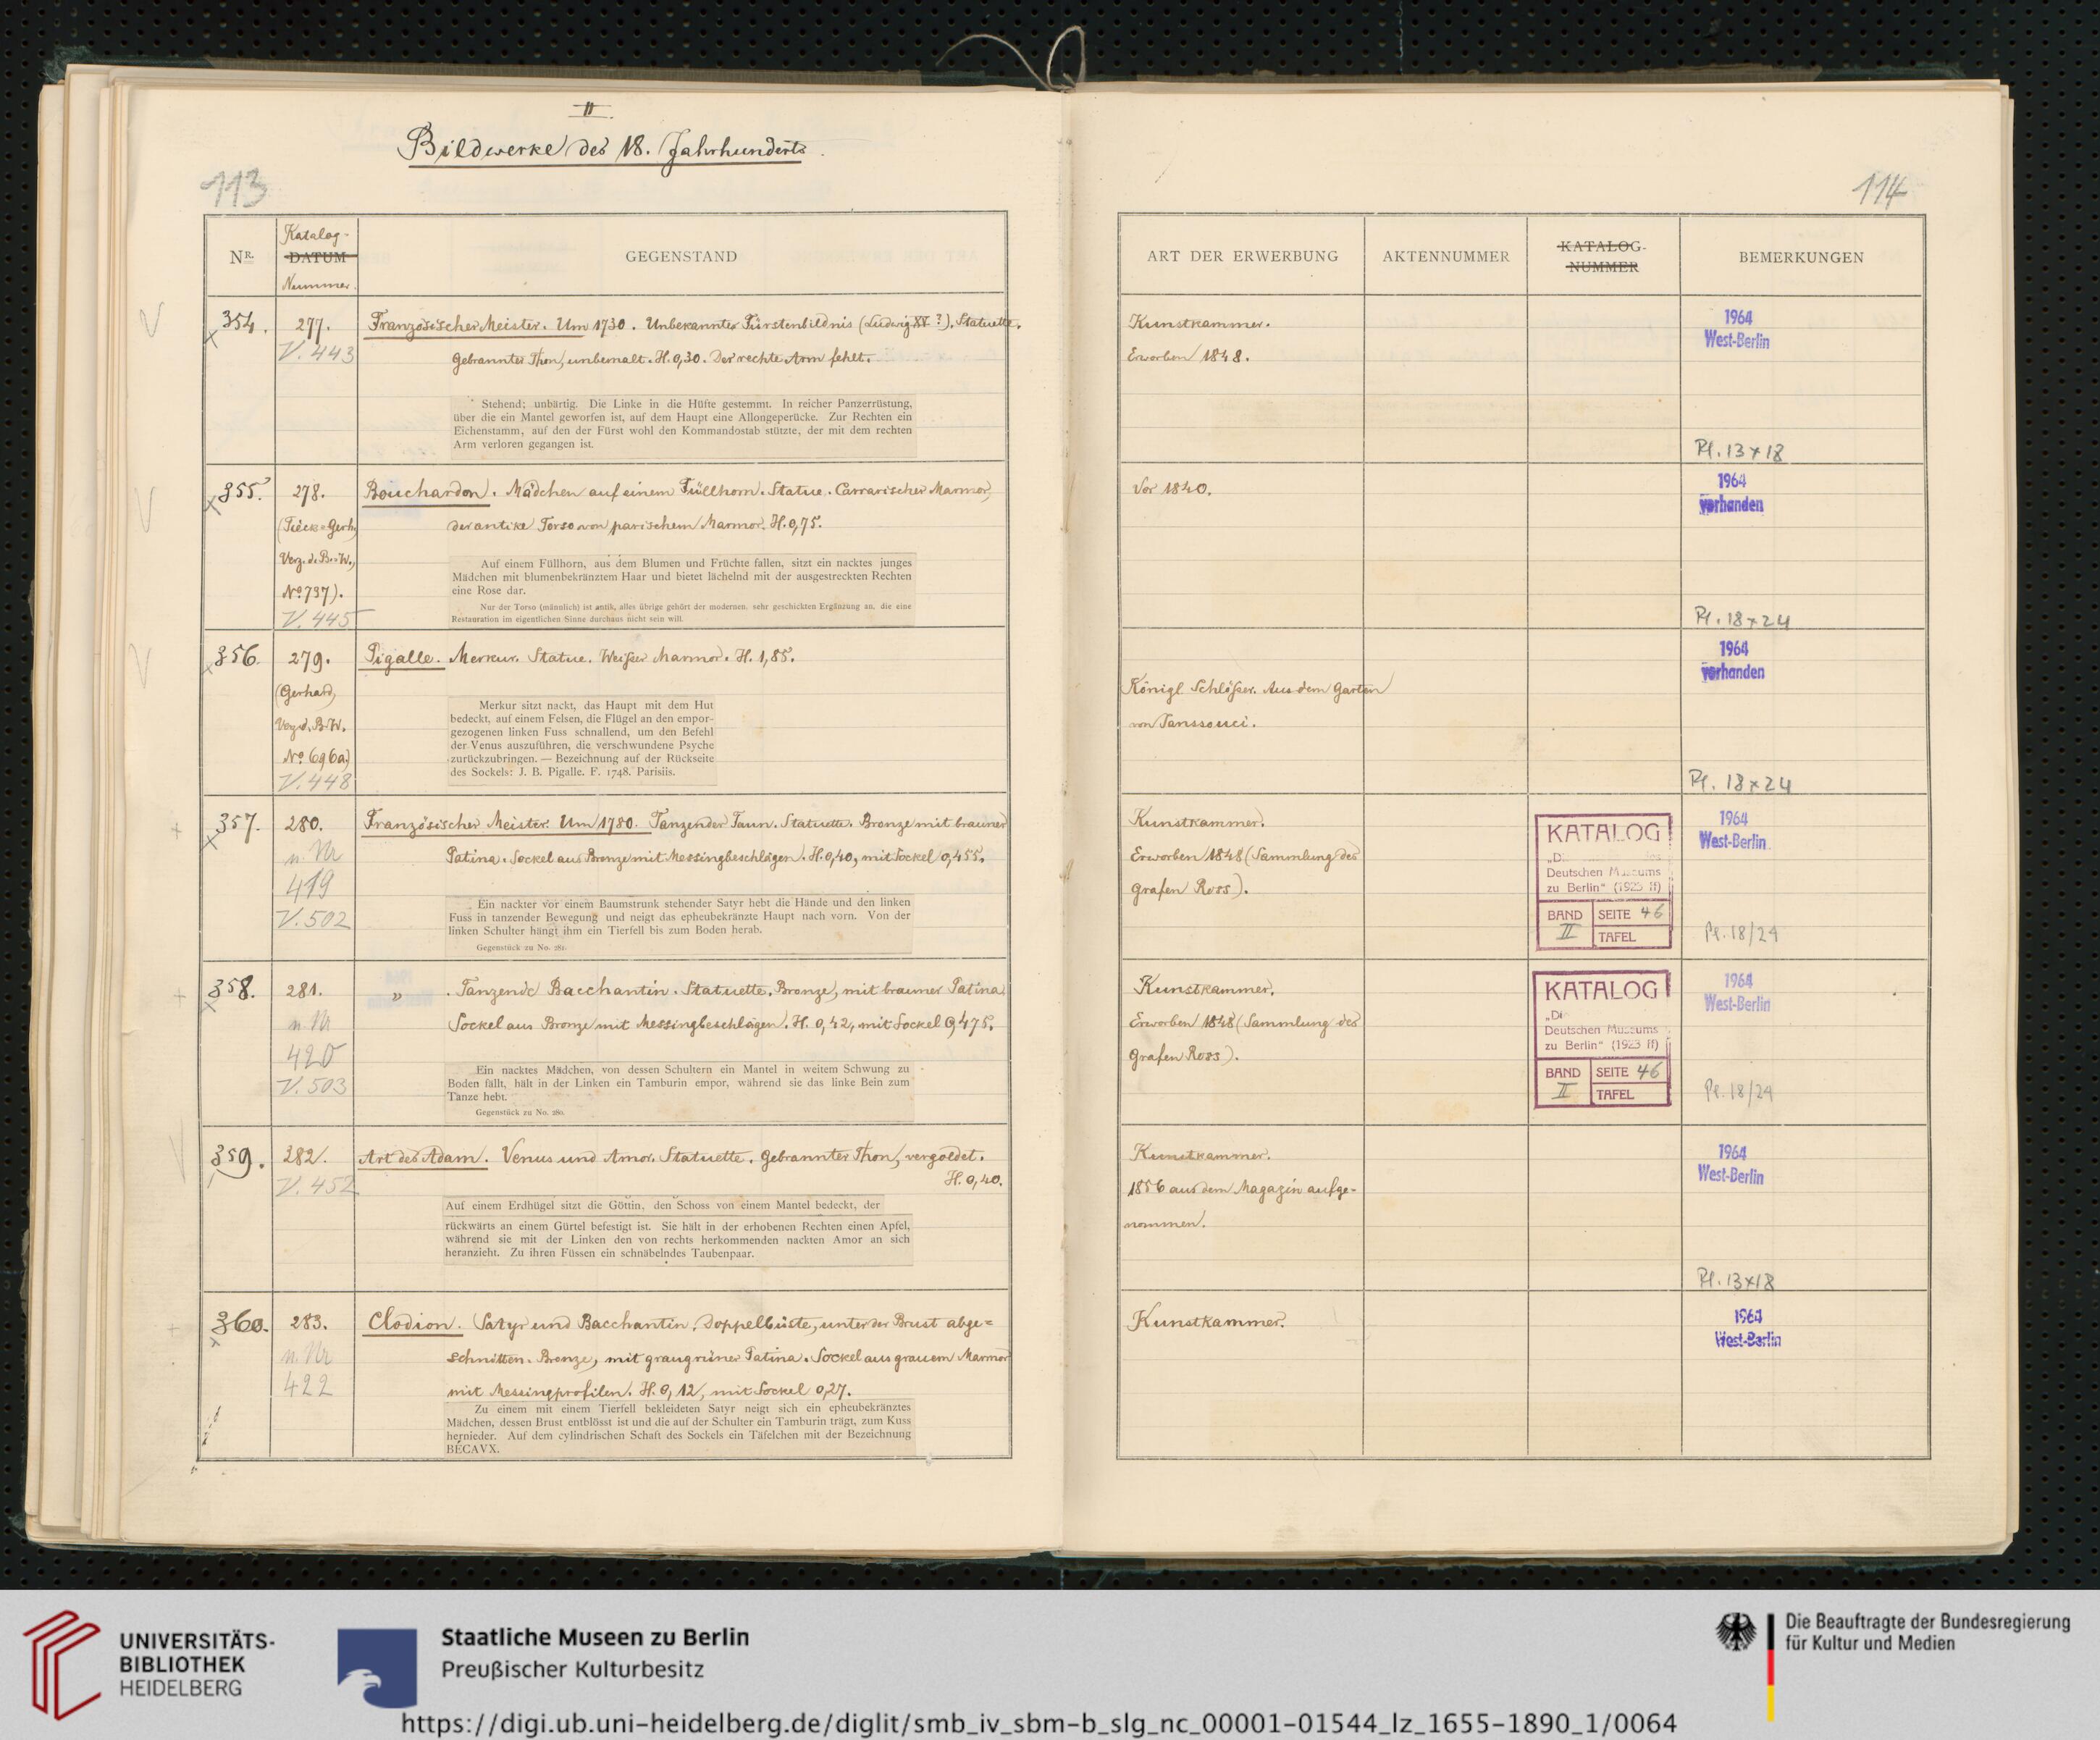 II.
Bildwerke des 18. Jahrhunderts.
113
114
NR.
Katalog-
DATUM
Nummer.
GEGENSTAND
ART DER ERWERBUNG
AKTENNUMMER
KATALOG-
NUMMER
BEMERKUNGEN
354.
277.
V. 443
Französischer Meister. Um 1730. Unbekanntes Fürstenbildnis (Ludwig XV ?). Statuette.
Gebrannter Thon, unbemalt. H. 0,30. Der rechte Arm fehlt.
Stehend; unbärtig. Die Linke in die Hüfte gestemmt. In reicher Panzerrüstung,
über die ein Mantel geworfen ist, auf dem Haupt eine Allongeperücke. Zur Rechten ein
Eichenstamm, auf den der Fürst wohl den Kommandostab stützte, der mit dem rechten
Arm verloren gegangen ist.
Kunstkammer.
Erworben 1848.
1964
West-Berlin
Pl. 13x18
355.
278.
(Tieck-Gerh.
Verz. d. B.-W.,
No 737).
V. 445
Bouchardon. Mädchen auf einem Füllhorn. Statue. Carrarischer Marmor,
der antike Torso von parischem Marmor. H. 0,75.
Auf einem Füllhorn, aus dem Blumen und Früchte fallen, sitzt ein nacktes junges
Mädchen mit blumenbekränztem Haar und bietet lächelnd mit der ausgestreckten Rechten
eine Rose dar.
Nur der Torso (männlich) ist antik, alles übrige gehört der modernen, sehr geschickten Ergänzung an, die eine
Restauration im eigentlichen Sinne durchaus nicht sein will.
Vor 1840.
1964
vorhanden
Pl. 18x24
356.
279.
(Gerhard,
Verz. d. B.-W.
No 696a)
V. 448
Pigalle. Merkur. Statue. Weißer Marmor. H. 1,85.
Merkur sitzt nackt, das Haupt mit dem Hut
bedeckt, auf einem Felsen, die Flügel an den empor-
gezogenen linken Fuss schnallend, um den Befehl
der Venus auszuführen, die verschwundene Psyche
zurückzubringen. — Bezeichnung auf der Rückseite
des Sockels: J. B. Pigalle. F. 1748. Parisiis.
Königl Schlößer. Aus dem Garten
von Sanssouci.
1964
vorhanden
Pl. 18x24
357.
280.
n. Nr
419
V. 502
Französischer Meister. Um 1780. Tanzender Faun. Statuette. Bronze mit brauner
Patina. Sockel aus Bronze mit Messingbeschlägen. H. 0,40, mit Sockel 0,455.
Ein nackter vor einem Baumstrunk stehender Satyr hebt die Hände und den linken
Fuss in tanzender Bewegung und neigt das epheubekränzte Haupt nach vorn. Von der
linken Schulter hängt ihm ein Tierfell bis zum Boden herab.
Gegenstück zu No. 281.
Kunstkammer.
Erworben 1848 (Sammlung des
Grafen Ross).
KATALOG
Deutschen Museums
zu Berlin" (1923 ff)
BAND II SEITE 46
TAFEL
1964
West-Berlin
Pl. 18/24
358.
281.
n. Nr
420
V. 503
" . Tanzende Bacchantin. Statuette. Bronze, mit brauner Patina.
Sockel aus Bronze mit Messingbeschlägen. H. 0,42, mit Sockel 0,475.
Ein nacktes Mädchen, von dessen Schultern ein Mantel in weitem Schwung zu
Boden fällt, hält in der Linken ein Tamburin empor, während sie das linke Bein zum
Tanze hebt.
Gegenstück zu No. 280.
Kunstkammer.
Erworben 1848 (Sammlung des
Grafen Ross).
KATALOG
Deutschen Museums
zu Berlin" (1923 ff)
BAND II SEITE 46
TAFEL
1964
West-Berlin
Pl. 18/24
359.
282.
V. 452
Art des Adam. Venus und Amor. Statuette. Gebrannter Thon, vergoldet.
H. 0,40.
Auf einem Erdhügel sitzt die Göttin, den Schoss von einem Mantel bedeckt, der
rückwärts an einem Gürtel befestigt ist. Sie hält in der erhobenen Rechten einen Apfel,
während sie mit der Linken den von rechts herkommenden nackten Amor an sich
heranzieht. Zu ihren Füssen ein schnäbelndes Taubenpaar.
Kunstkammer.
1856 aus dem Magazin aufge-
nommen.
1964
West-Berlin
Pl. 13x18
360.
283.
n. Nr
422
Clodion. Satyr und Bacchantin. Doppelbüste, unter der Brust abge=
schnitten. Bronze, mit graugrüner Patina. Sockel aus grauem Marmor
mit Messingprofilen. H. 0,12, mit Sockel 0,27.
Zu einem mit einem Tierfell bekleideten Satyr neigt sich ein epheubekränztes
Mädchen, dessen Brust entblösst ist und die auf der Schulter ein Tamburin trägt, zum Kuss
hernieder. Auf dem cylindrischen Schaft des Sockels ein Täfelchen mit der Bezeichnung
BÉCAVX.
Kunstkammer.
1964
West-Berlin
UNIVERSITÄTS-
BIBLIOTHEK
HEIDELBERG
Staatliche Museen zu Berlin
Preußischer Kulturbesitz
Die Beauftragte der Bundesregierung
für Kultur und Medien
https://digi.ub.uni-heidelberg.de/diglit/smb_iv_sbm-b_slg_nc_00001-01544_lz_1655-1890_1/0064